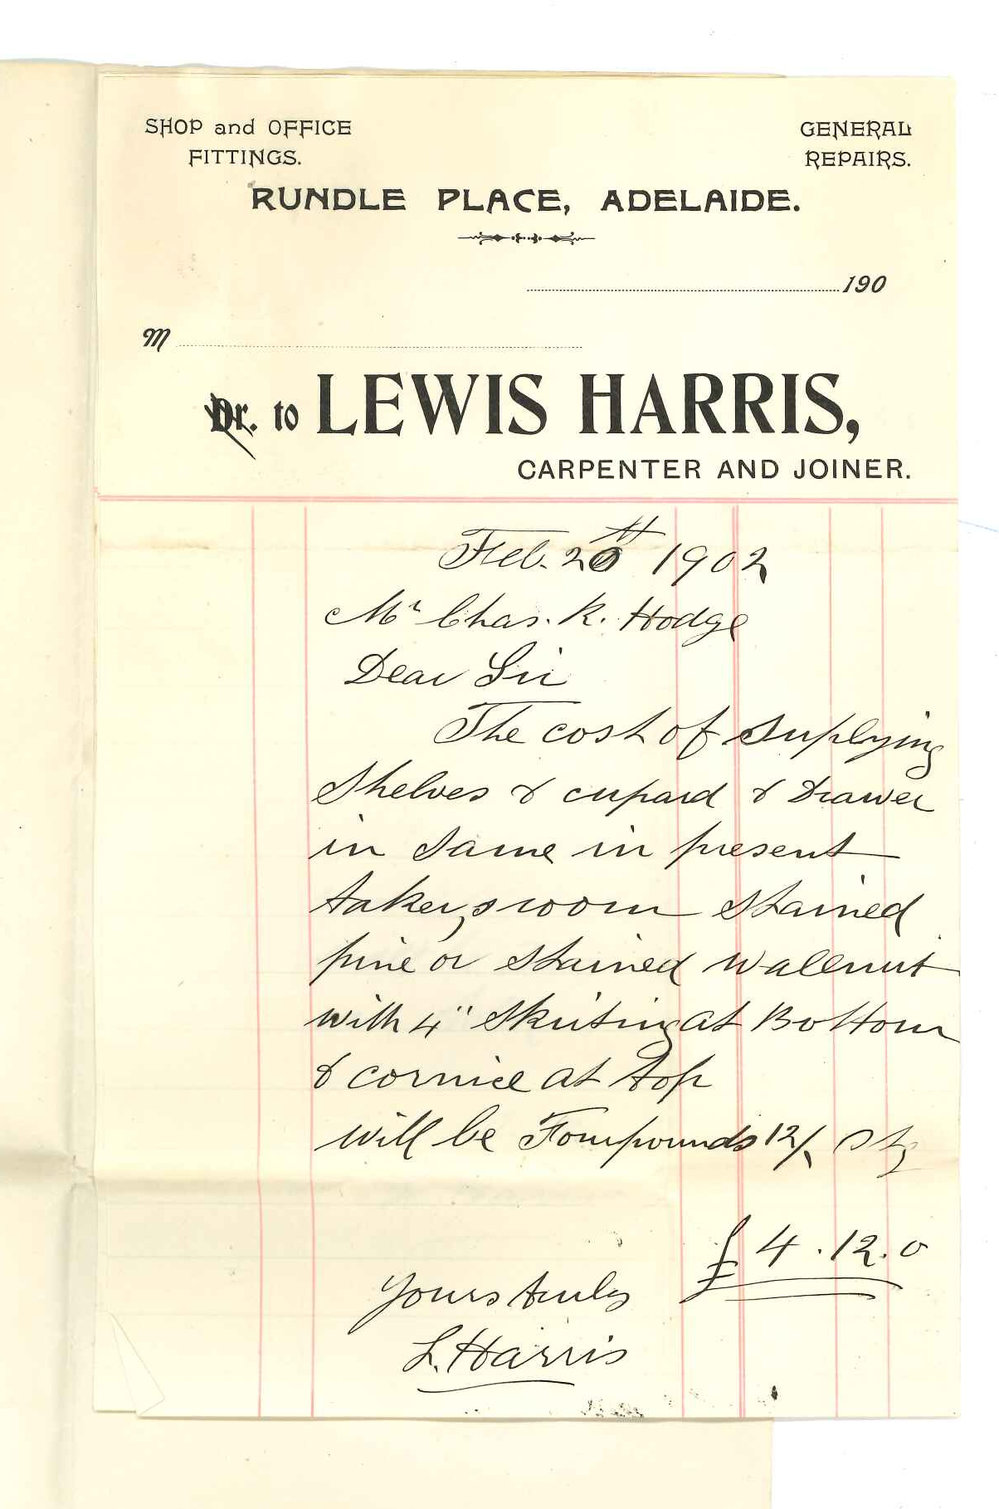 SHOP and OFFICE
FITTINGS.
GENERAL
REPAIRS.
RUNDLE PLACE, ADELAIDE.
190
M
Dr. to LEWIS HARRIS,
CARPENTER AND JOINER.
Feb. 20th 1902
Mr Chas. R. Hodge
Dear Sir
The cost of Suplying
Shelves & cupard & Drawer
in Same in present
takers room Stained
pine or Stained Wallnut
with 4" Skirting at Bottom
& cornice at top
will be Four pounds 12/ Stg
£4.12.0
Yours truly
L. Harris